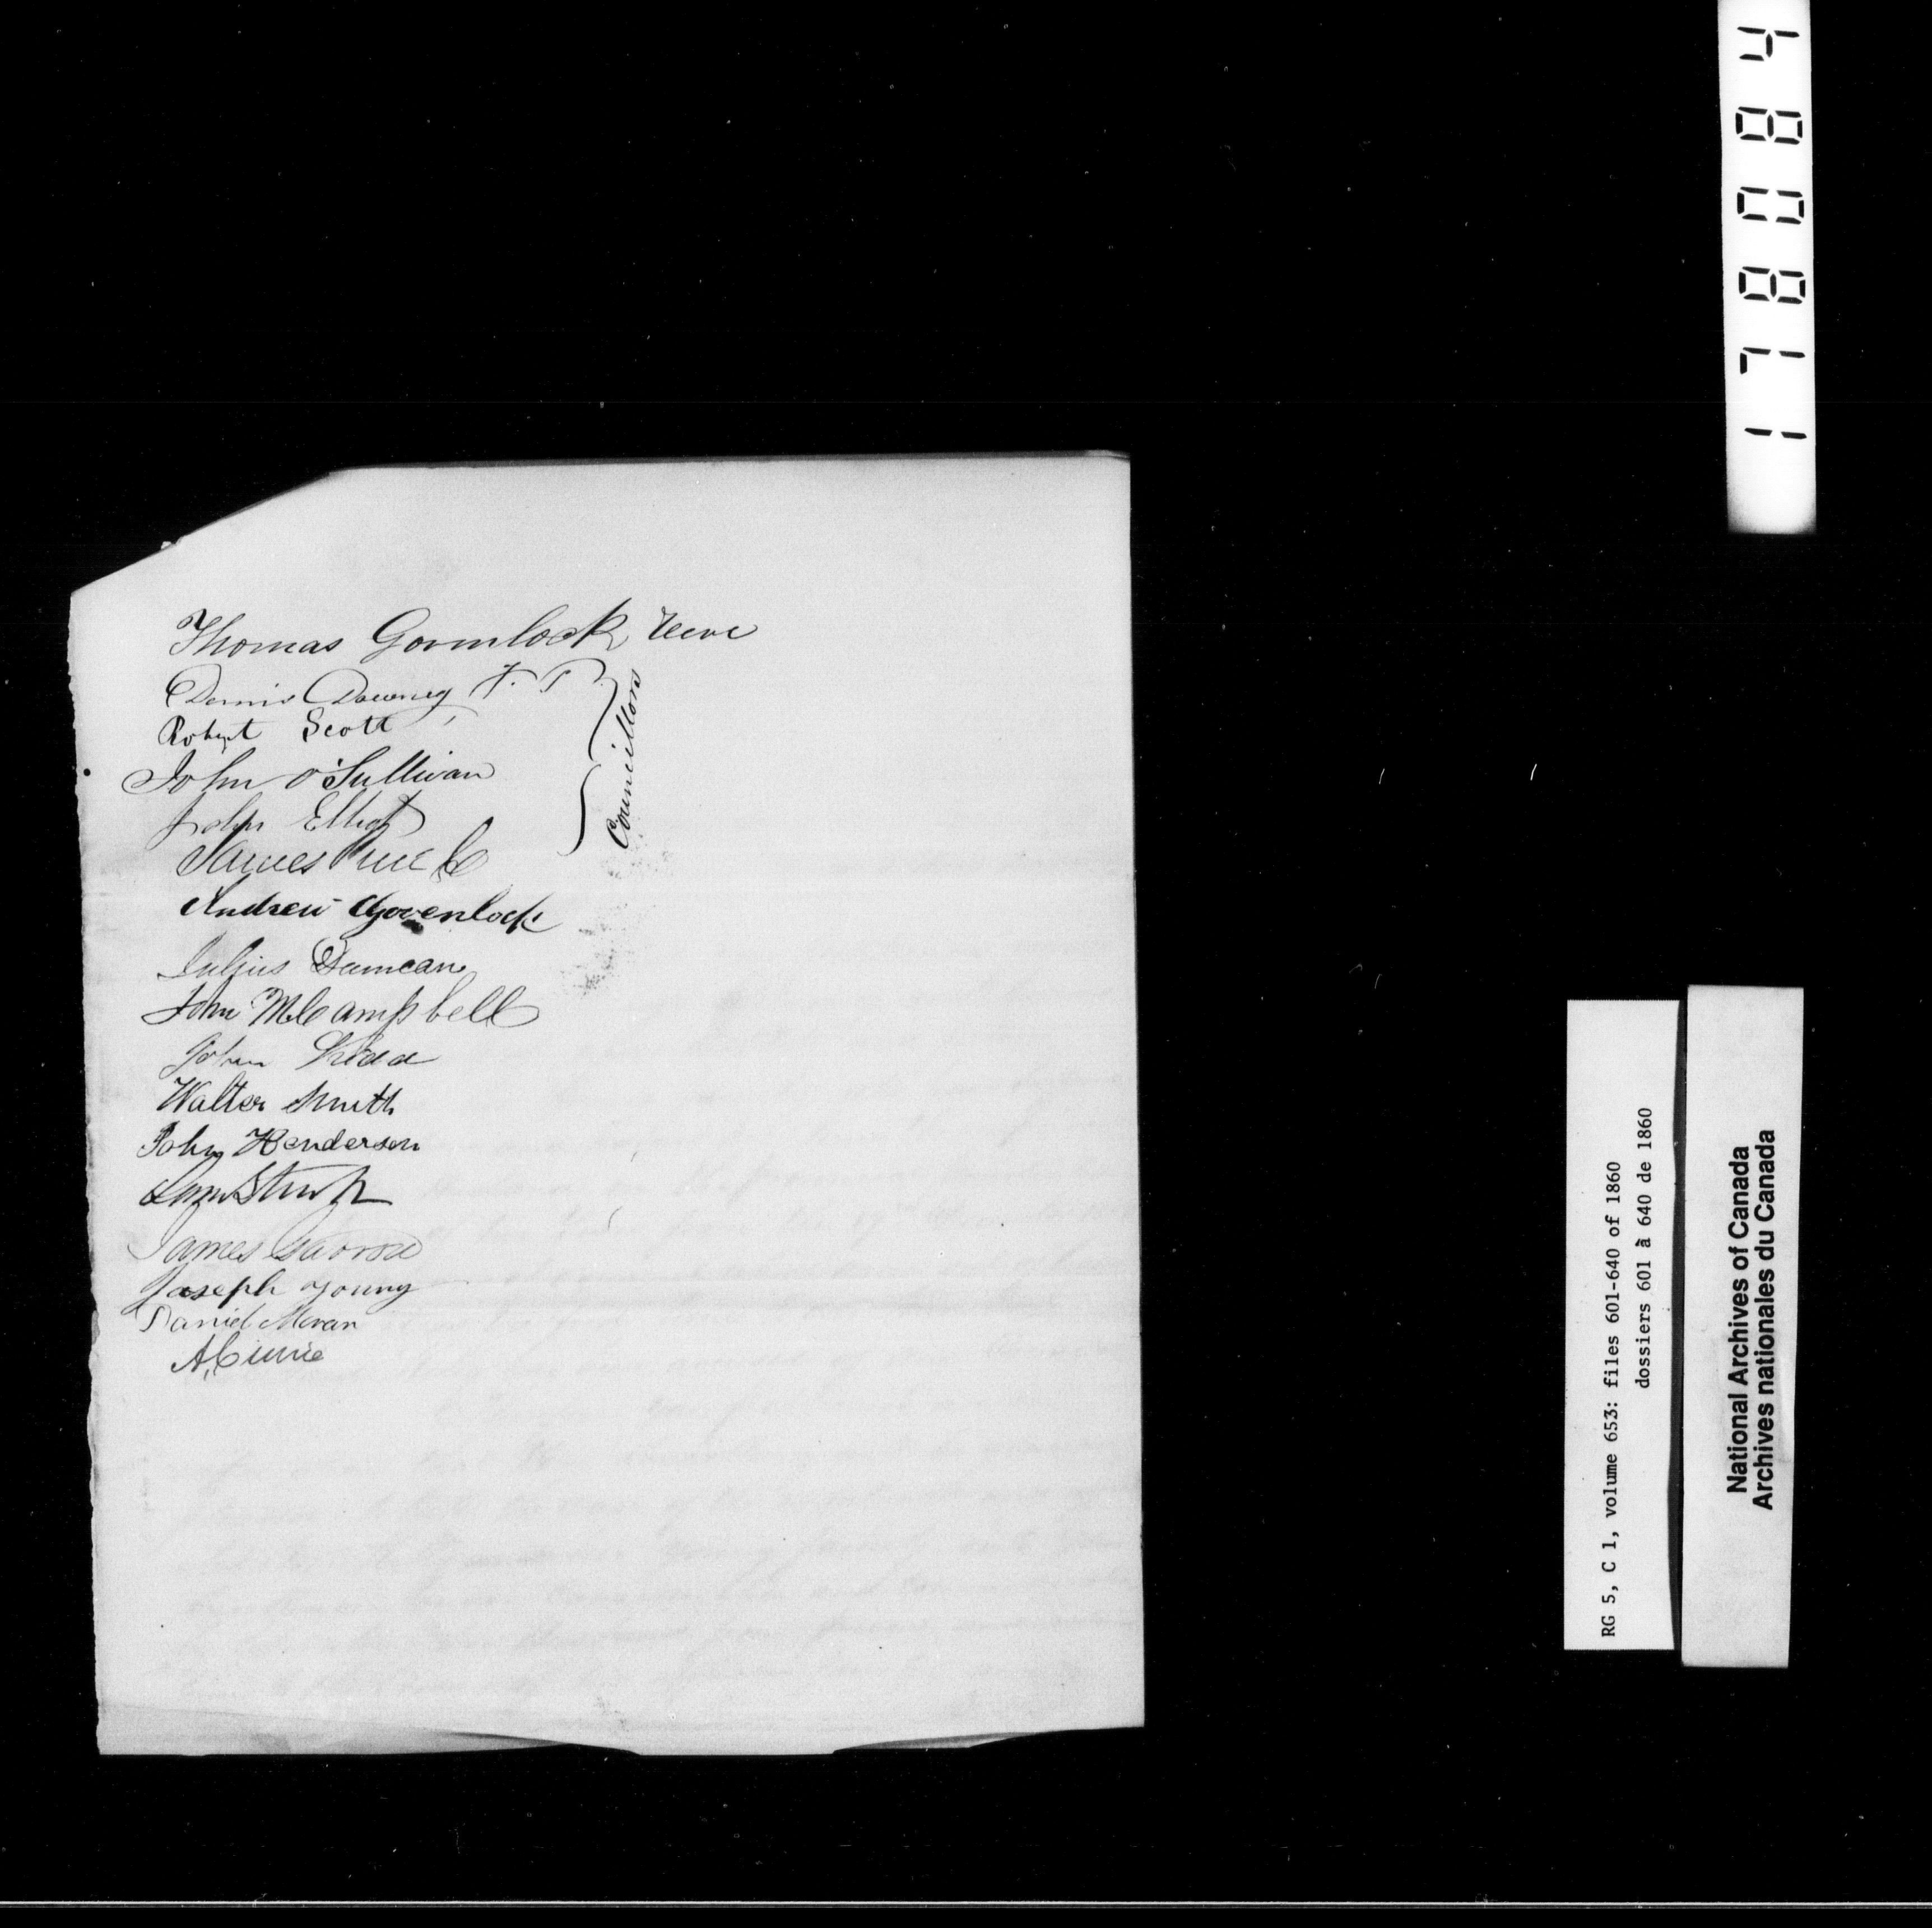 Thomas Govenlock, Reeve
Dennis Downey J. P.
Robert Scott
John O'Sullivan
John Elliot
Councillors
James
Andrew Govenlock
Duncan
John McCampbell
John Kidd
Walter Smith
John Henderson
James
Joseph Young
Daniel Moran
A Currie
RG 5, C 1, volume 653: files 601-640 of 1860
dossiers 601 à 640 de 1860
National Archives of Canada
Archives nationales du Canada